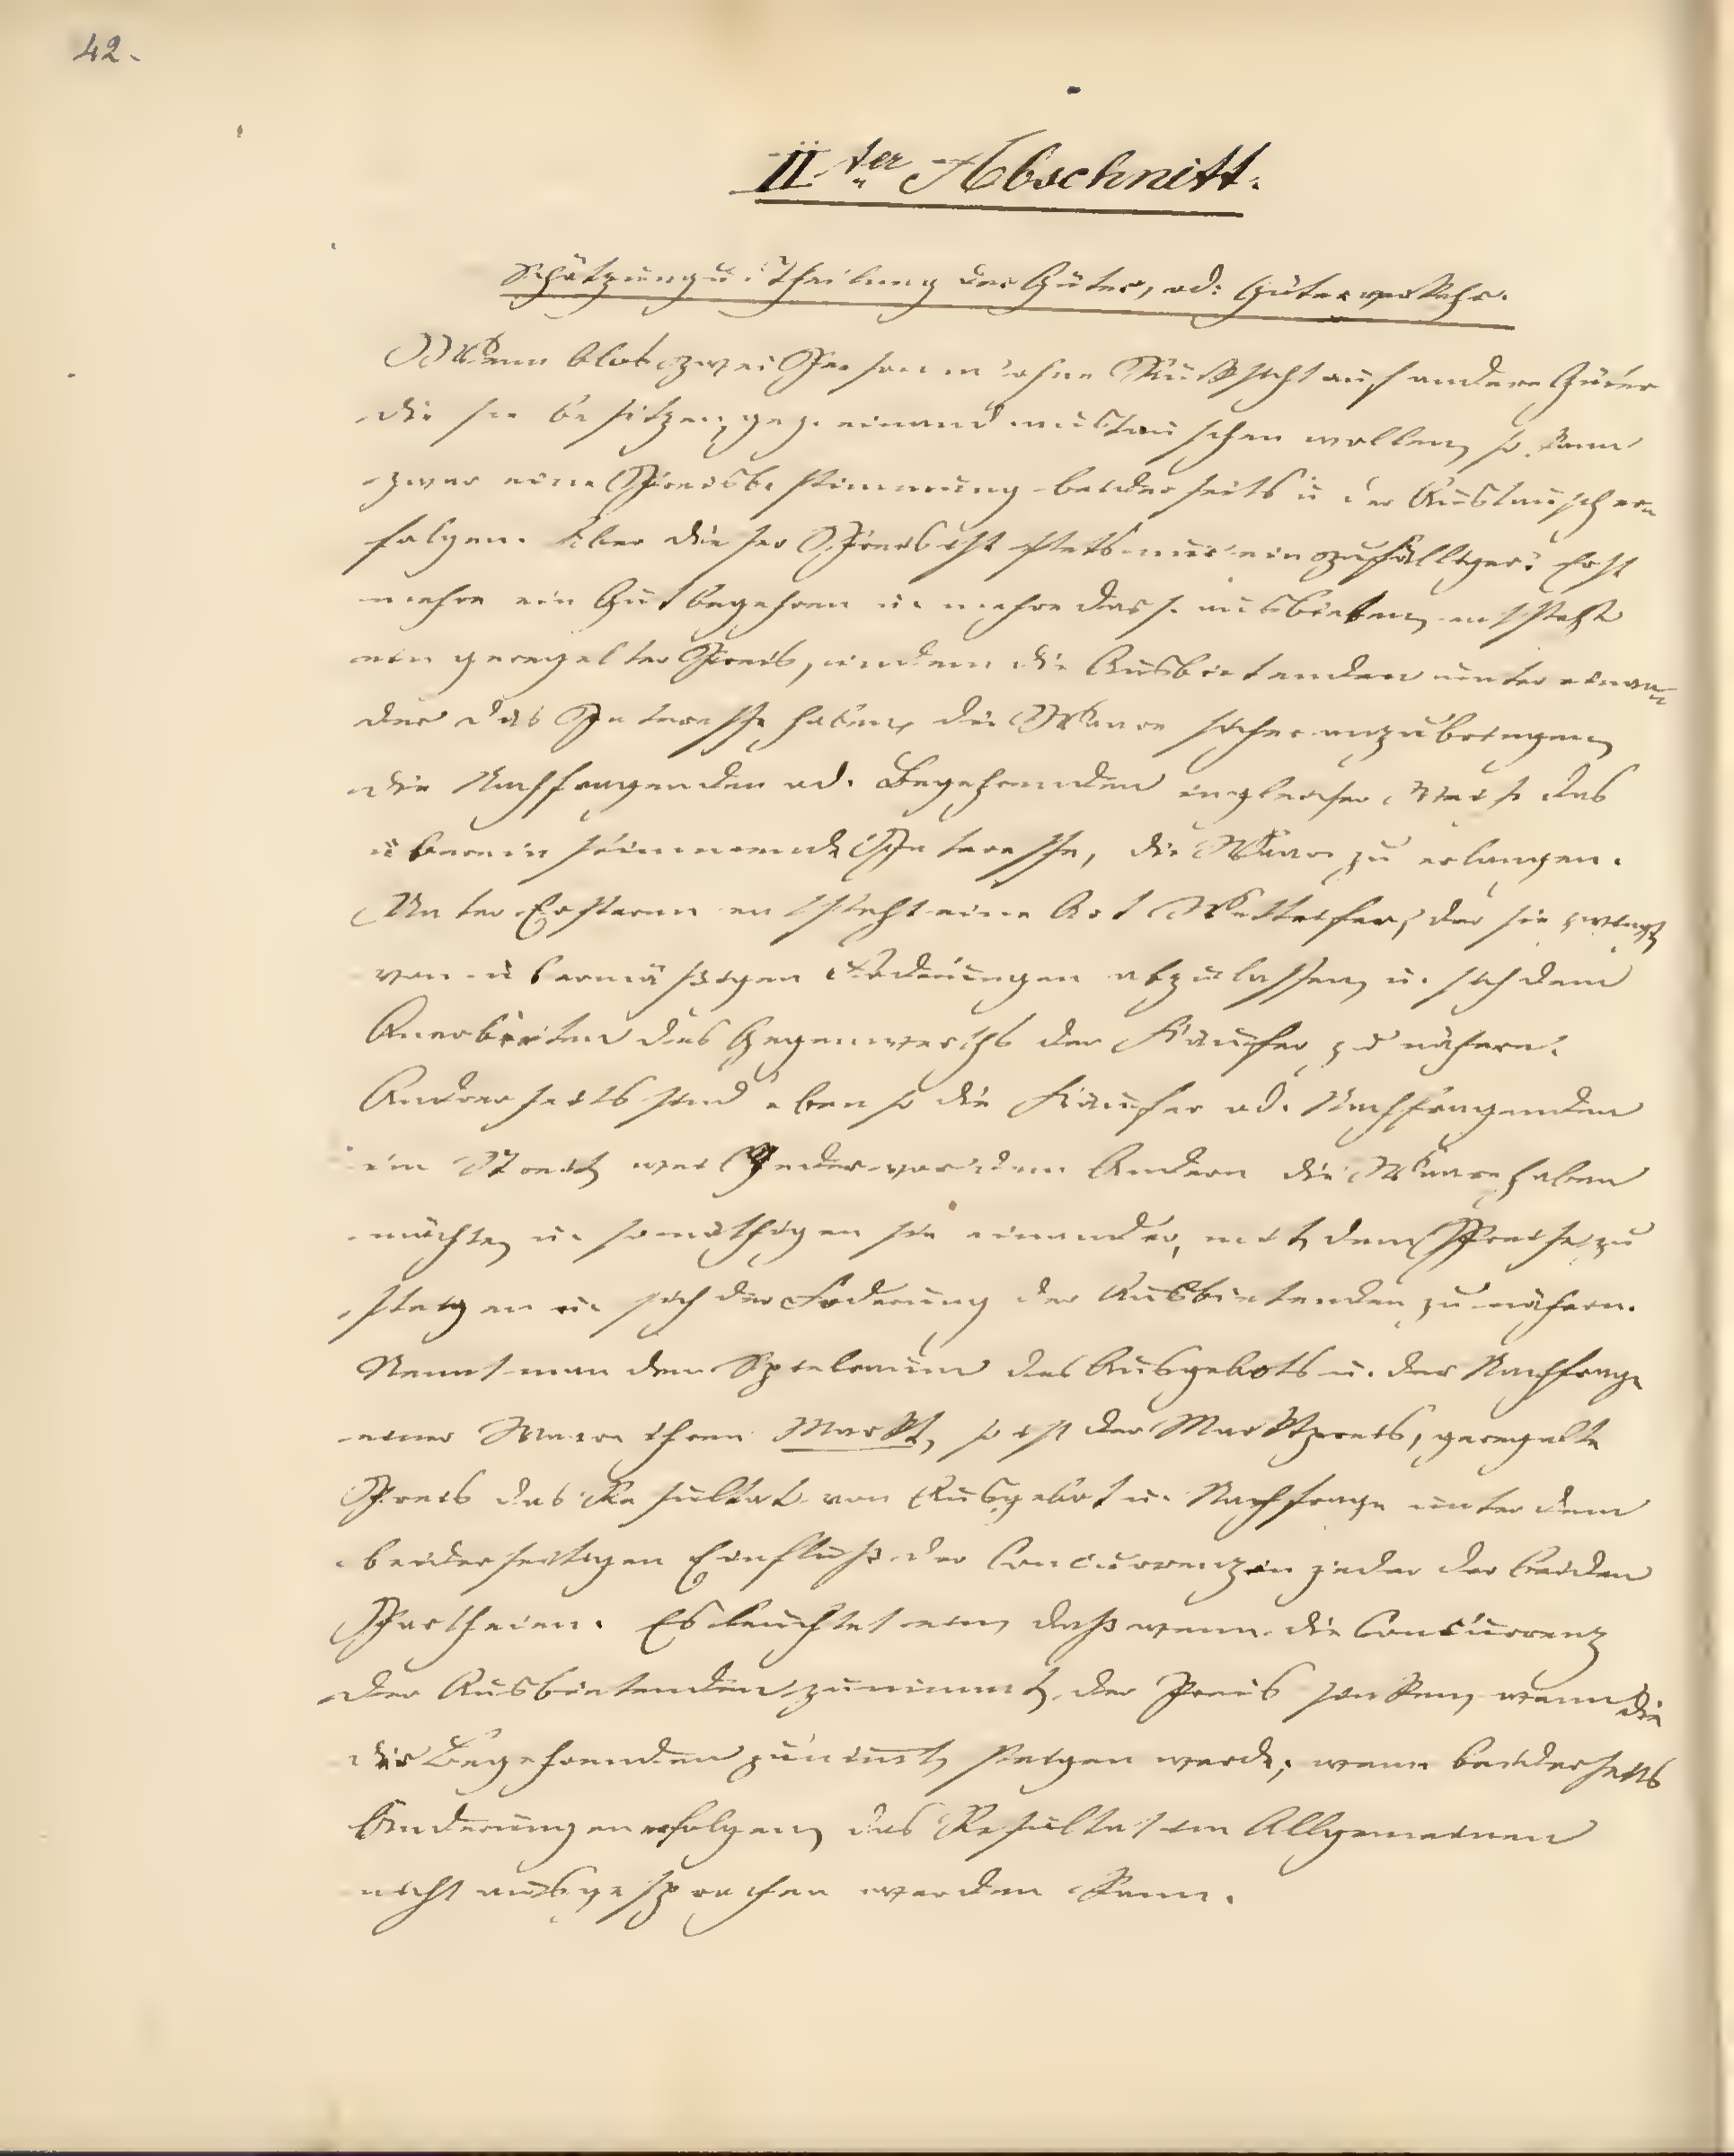 42.
II.ter Abschnitt.
Schätzung u. Theilung der Güter, od: Güterverkehr.
Wenn blos zwei Personen ohne Rücksicht auf andere Güter
die sie besitzen, geg. einand austauschen wollen, so kann
zwar eine Preisbestimmung beiderseits u der Austausch er-
folgen. Aber dieser Preis ist stets nur ein zufälliger. Erst
mehre ein Gut begehren u. mehre dass. ausbieten, entsteht
ein geregelter Preis, indem die Ausbietenden unter einan-
der das Interesse haben, die Waare sicher anzubringen,
die Nachfragenden od. Begehrenden in gleicher Weise das
übereinstimmende Interesse, die Waare zu erlangen.
Unter Ersteren entsteht eine Art Wetteifer, der sie zwingt,
von übermäßigen Foderungen abzulassen, u. sich dem
Anerbieten des Gegenwerths der Käufer zu nähern.
Andrerseits sind eben so die Käufer od. Nachfragenden
im Streit, weil Jeder vor dem Andern die Waare haben
möchte, u. so nöthigen sie einander, mit dem Preise zu
steigen u. sich der Foderung der Ausbietenden zu nähern.
Nennt man den Spielraum des Ausgebots u. der Nachfrage
einer Waare ihren Markt, so ist der Marktpreis, geregelte
Preis das Resultat von Ausgebot u. Nachfrage unter dem
beiderseitigen Einfluß der Concurrenz in jeder der beiden
Partheien. Es leuchtet ein, daß wenn die Concurrenz
der Ausbietenden zunimmt, der Preis sinken, wenn die
der Begehrenden zunimt, steigen werde; wenn beiderseits
Änderungen erfolgen, das Resultat im Allgemeinen
nicht ausgesprochen werden kann.